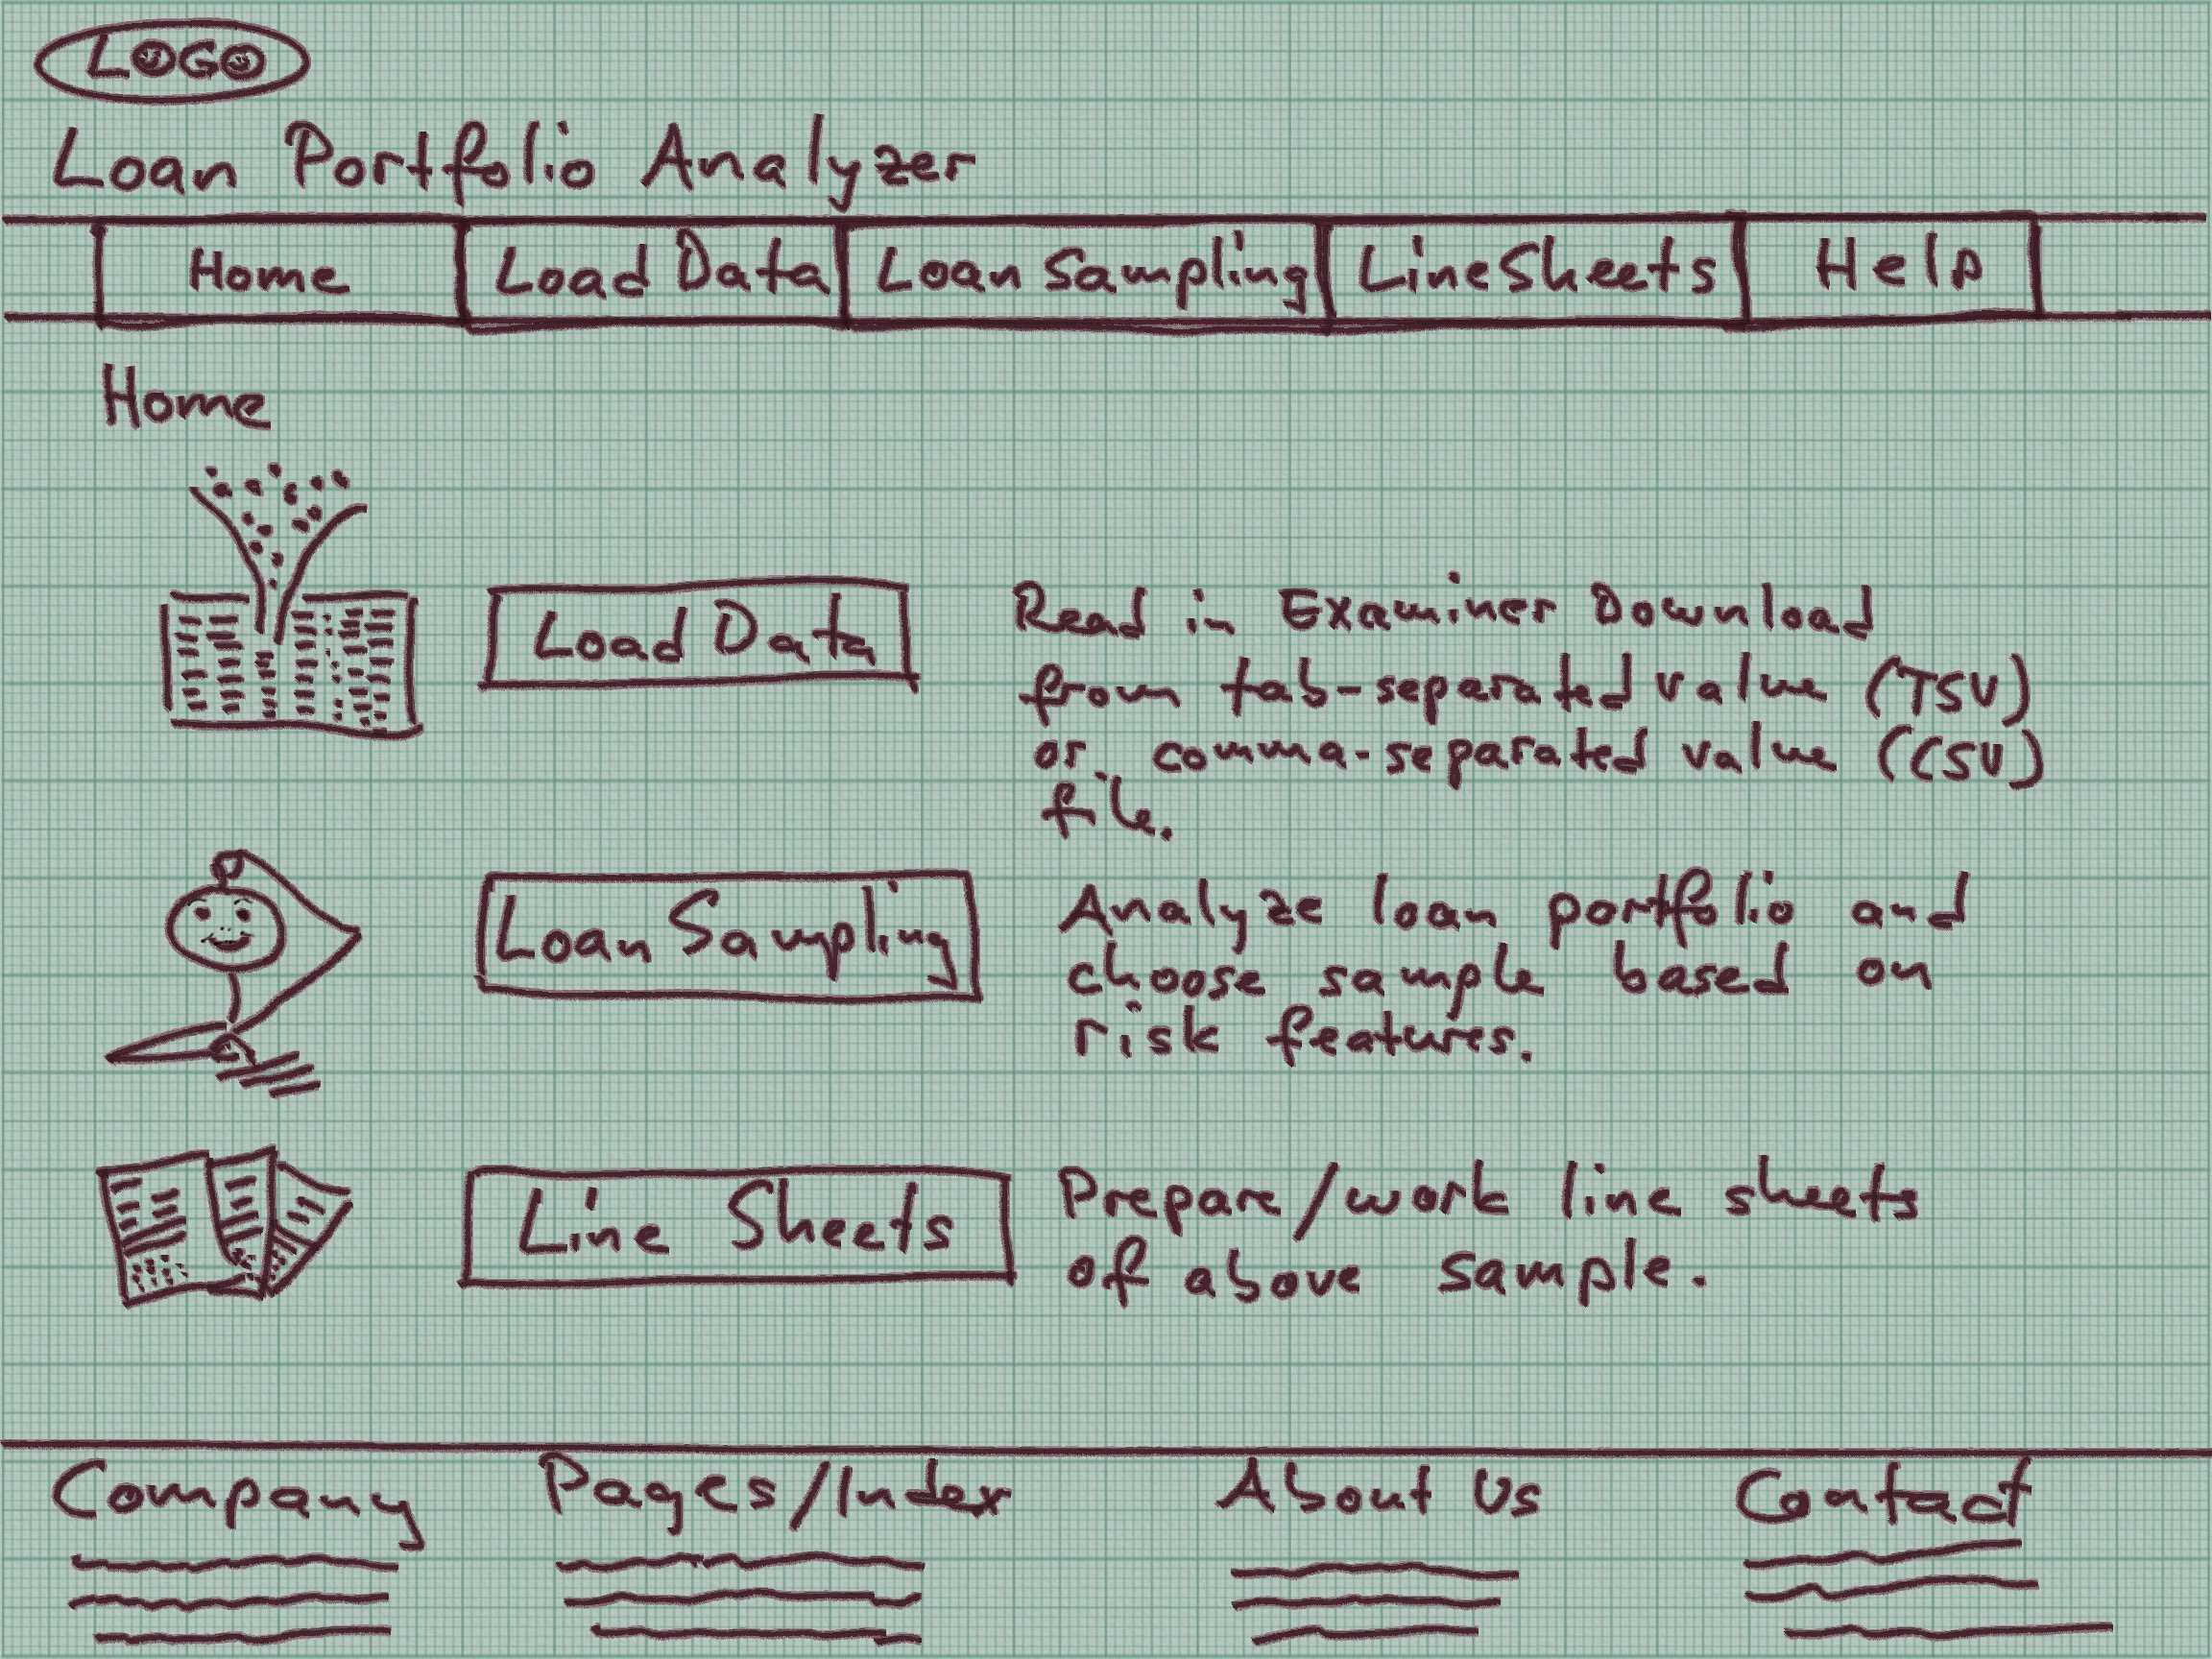 LOGO
Loan Portfolio Analyzer
Home Load Data Loan Sampling Line Sheets Help
Home
Load Data
Read in Examiner Download
from tab-separated value (TSV)
or comma-separated value (CSV)
file.
Loan Sampling
Analyze loan portfolio and
choose sample based on
risk features.
Line Sheets
Prepare/work line sheets
of above sample.
Company Pages/Index About Us Contact